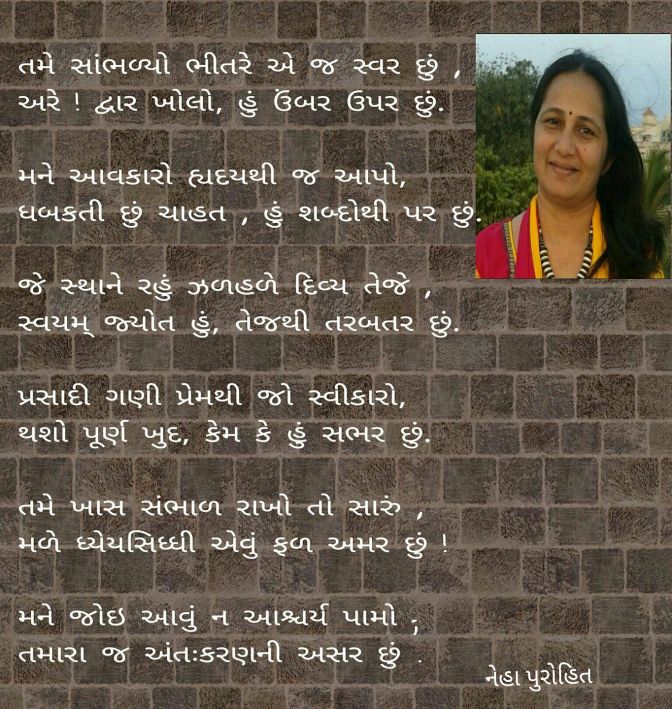 તમે સાંભળ્યો ભીતરે એ જ સ્વર છું ,
અરે ! દ્વાર ખોલો, હું ઉંબર ઉપર છું.
મને આવકારો હ્યદયથી જ આપો,
ધબકતી છું ચાહત , હું શબ્દોથી પર છું.
જે સ્થાને રહું ઝળહળે દિવ્ય તેજે ,
સ્વયમ્ જ્યોત હું, તેજથી તરબતર છું.
પ્રસાદી ગણી પ્રેમથી જો સ્વીકારો,
થશો પૂર્ણ ખુદ, કેમ કે હું સભર છું.
તમે ખાસ સંભાળ રાખો તો સારું ,
મળે ધ્યેયસિધ્ધી એવું ફળ અમર છું !
મને જોઇ આવું ન આશ્ચર્ય પામો ;
તમારા જ અંતઃકરણની અસર છું .
નેહા પુરોહિત